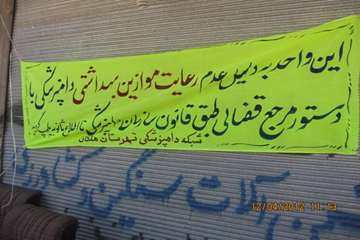 این واحد به دلیل عدم رعایت موازین بهداشتی و دامپزشکی با
دستور مرجع قضائی طبق قانون سازمان دامپزشکی تا اطلاع ثانوی پلمپ گردید
شبکه دامپزشکی شهرستان
آلات سنگین کشاورزی
12/04/2012 11:13